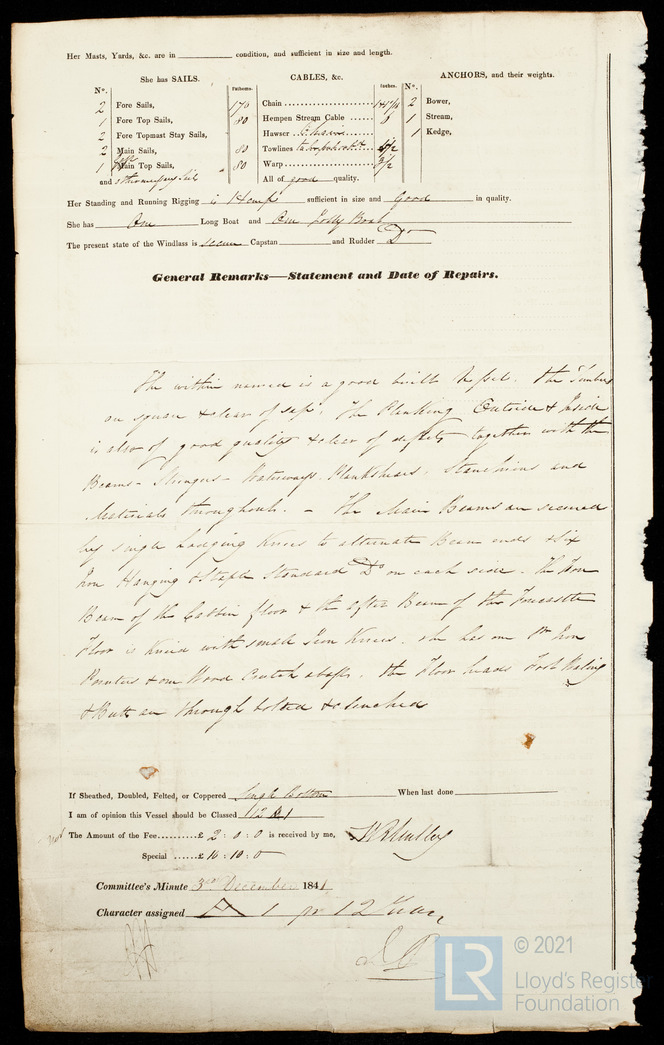 Her Masts, Yards, &c. are in condition, and sufficient in size and length.
She has SAILS. CABLES, &c. ANCHORS, and their weights.
N°. Fathoms. Inches. N°.
2 Fore Sails, 170 Chain 2 Bower,
1 Fore Top Sails, 80 Hempen Stream Cable 8 1 Stream,
2 Fore Topmast Stay Sails, Hawser Chain 1 Kedge,
2 Main Sails, 80 Towlines
1 Main Top Sails, 80 Warp
and other necessary Sails All of good quality.
Her Standing and Running Rigging is Hemp sufficient in size and Good in quality.
She has One Long Boat and One Jolly Boat
The present state of the Windlass is secure Capstan and Rudder Do
General Remarks—Statement and Date of Repairs.
The within named is a good built Vessel. the Timbers
are square & clear of sap. The Planking Outside & Inside
is also of good quality & clear of defects together with the
Beams - Stringers - Waterways. Plankshears. Stanchions and
Materials throughout. - The Main Beams are secured
by single Lodging Knees to alternate Beam ends & Six
Iron Hanging & Staple Standard Do on each side. The Iron
Beam of the Cabbin floor & the after Beam of the Forecastle
Floor is Kneed with small Iron Knees. she has one Pr Iron
Pointers & one Wood Crutch abaft. the Floor heads
& Butts are through bolted & clenched
If Sheathed, Doubled, Felted, or Coppered Single Bottom When last done
I am of opinion this Vessel should be Classed 12 A 1
The Amount of the Fee £ 2 : 0 : 0 is received by me,
Special £ 10 : 10 : 0
Committee's Minute 3rd December 1841
Character assigned A 1 for 12 Years
© 2021
LR Lloyd's Register
Foundation